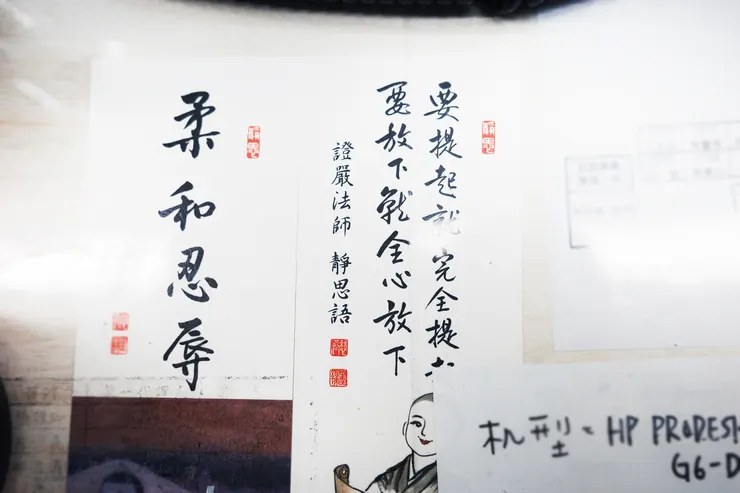 要提起就完全提
要放下就全心放下
證嚴法師 靜思語
柔和忍辱
机型: HP PRODESK
G6-D